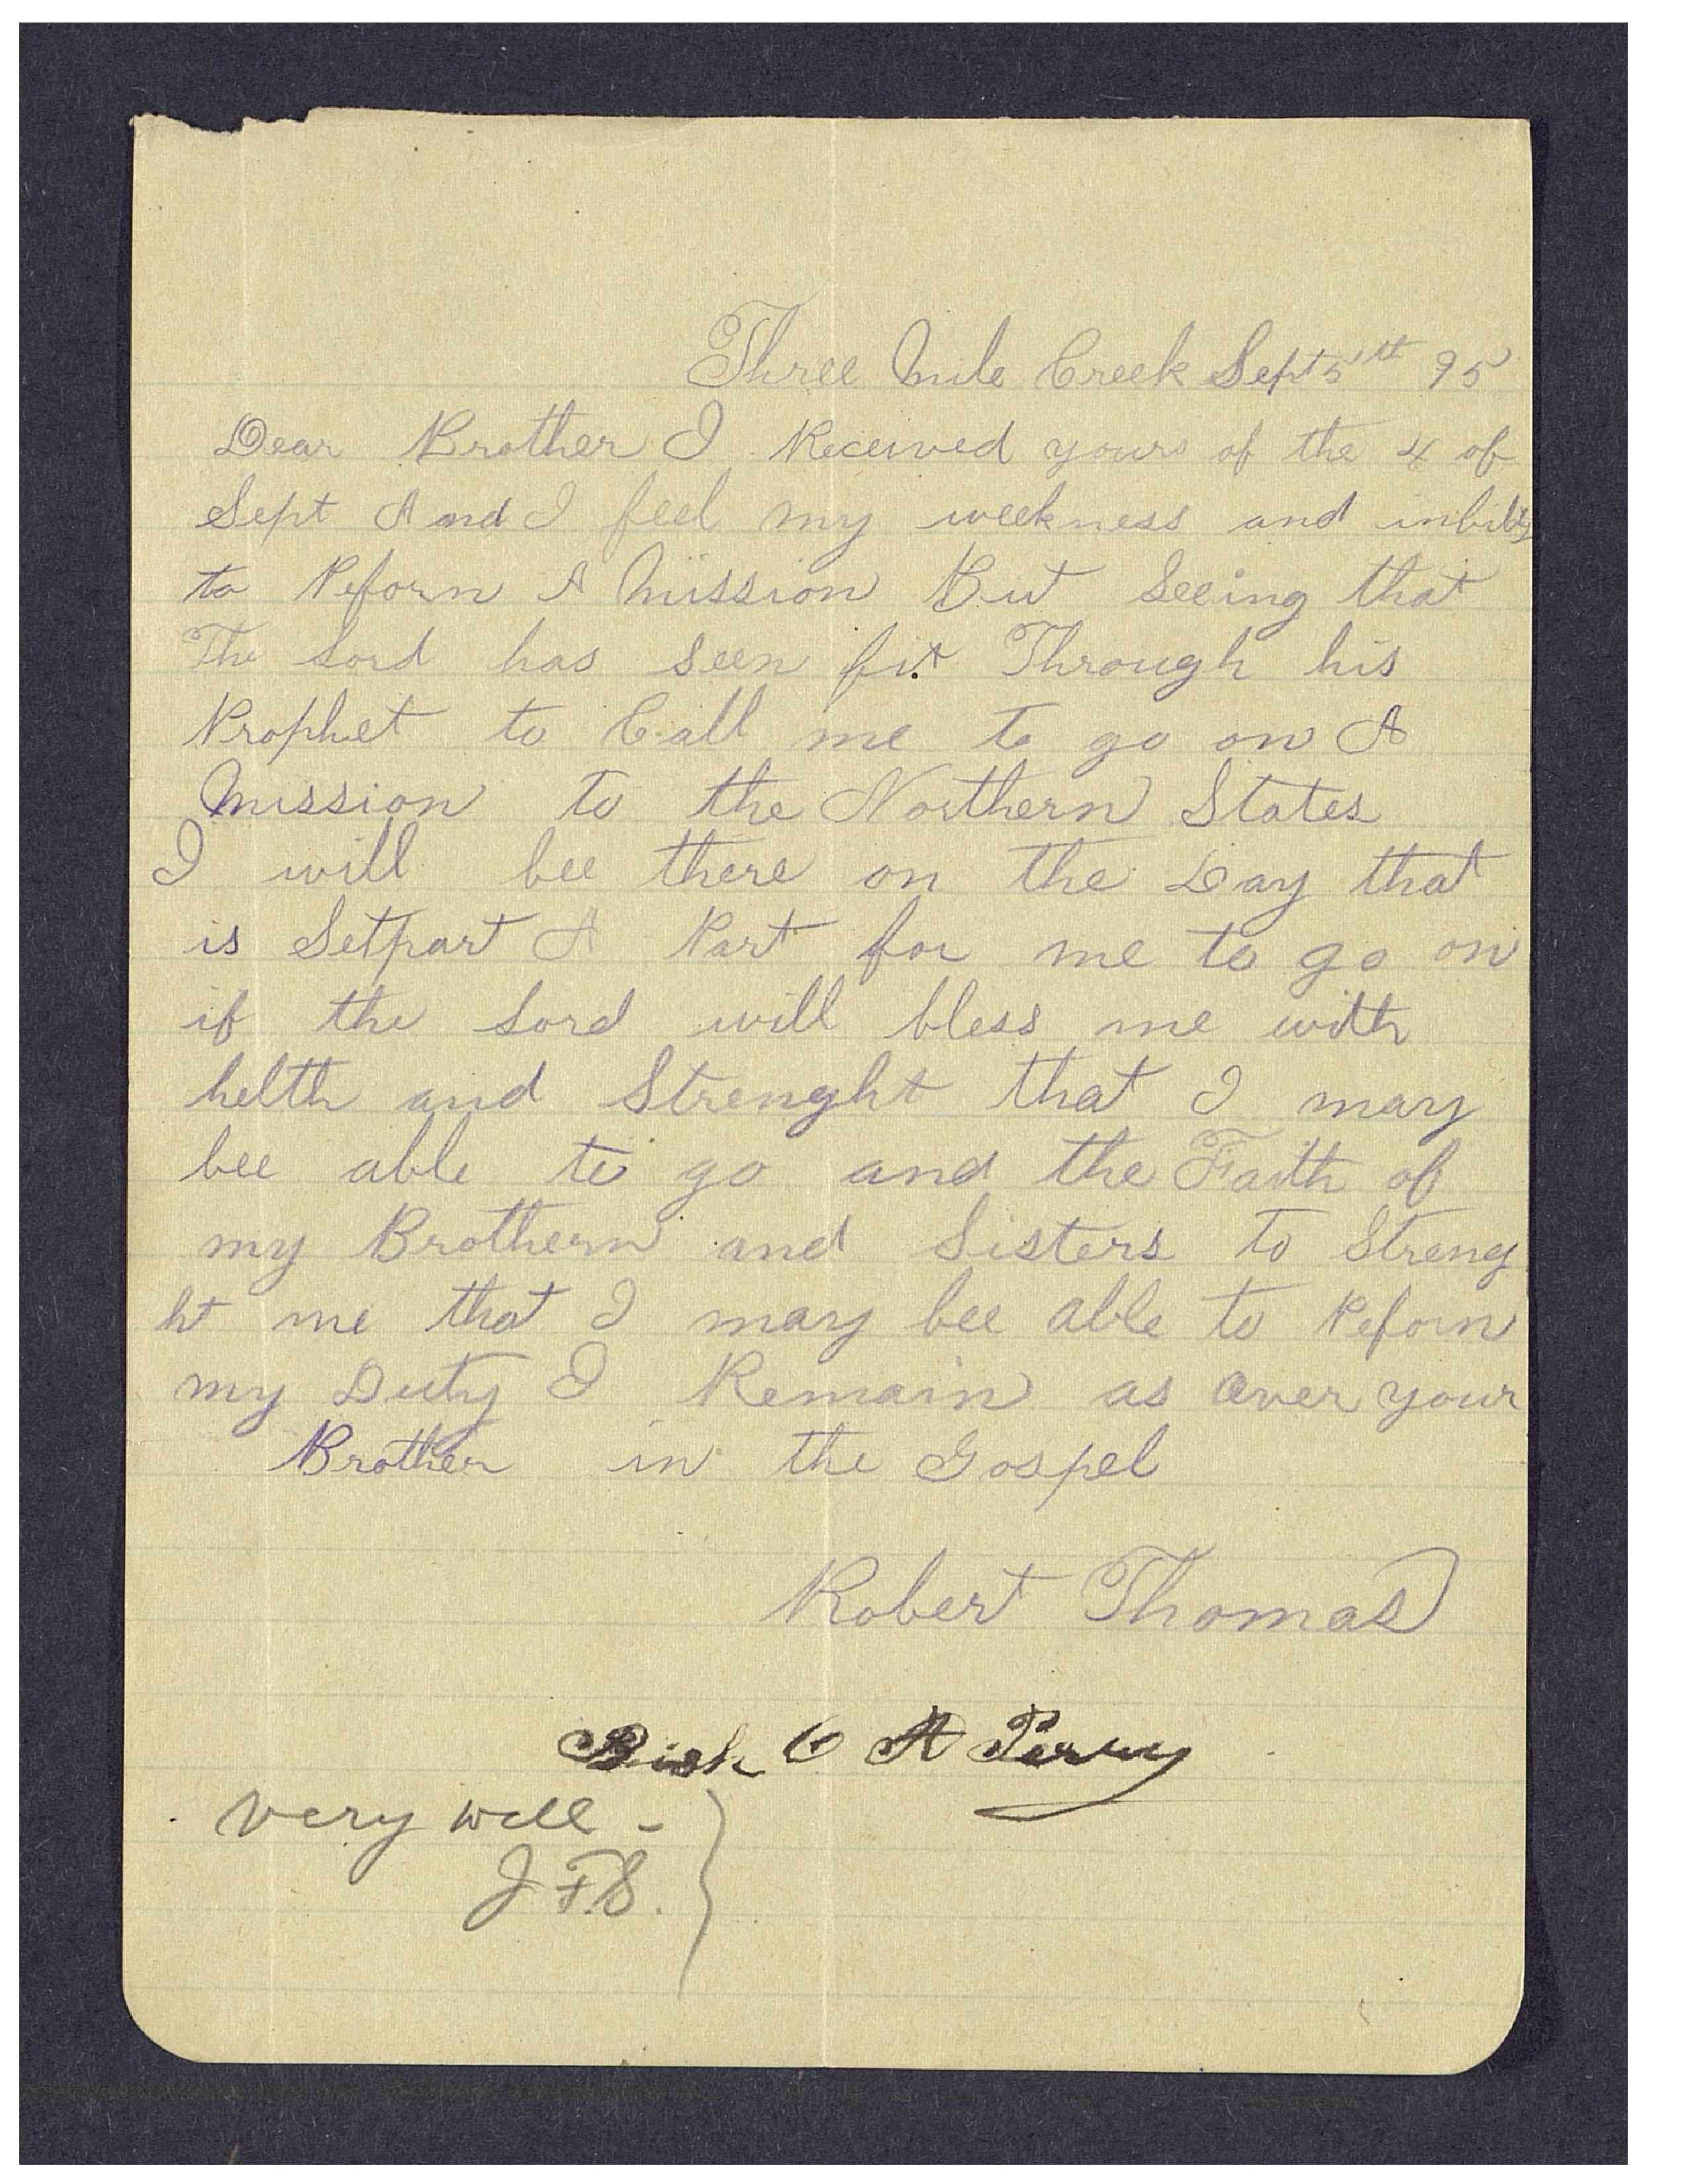 Three Mile Creek Sept 5th 95
Dear Brother I Received yours of the 4 of
Sept And I feel my weekness and inbility
to Peform A Mission But Seeing that
The Lord has seen fit Through his
Prophet to Call me to go on A
Mission to the Northern States
I will bee there on the Day that
is Setpart A Part for me to go on
if the Lord will bless me with
helth and Strenght that I may
bee able to go and the Faith of
my Brothern and Sisters to Streng
ht me that I may bee able to Peforn
my Duty I Remain as ever your
Brother in the Gospel
Robert Thomas
Bish O A Perry
very well -
J F.S.